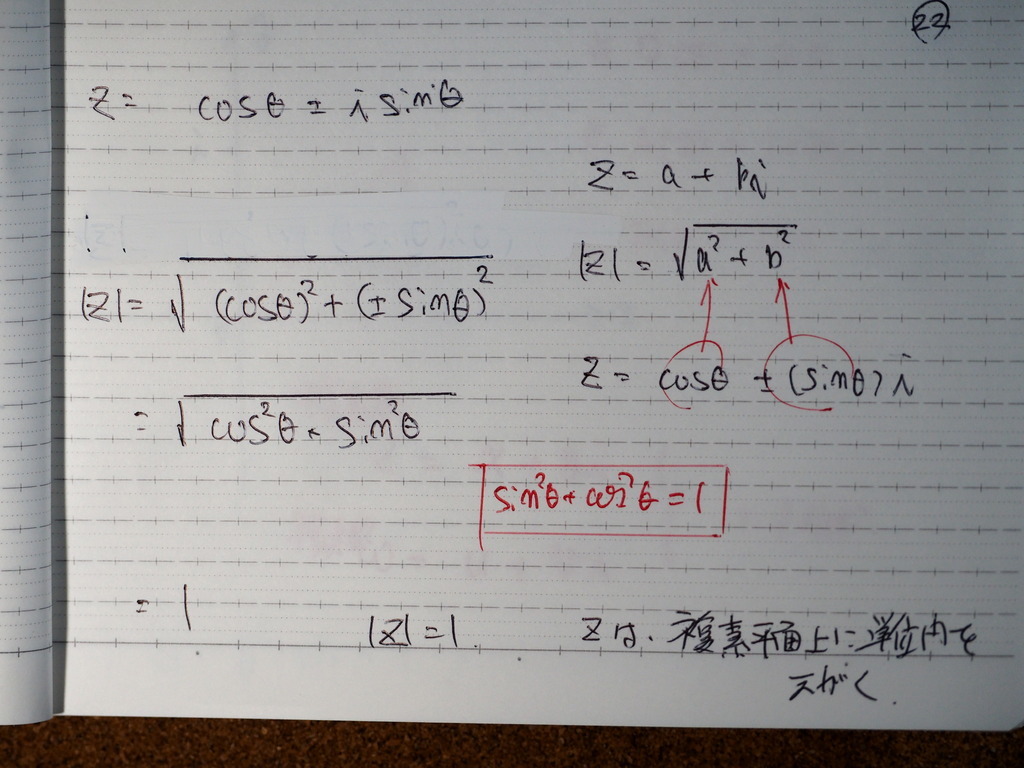 22
z = cosθ ± i sinθ
z = a + bi
|z| = √(a² + b²)
|z| = √((cosθ)² + (± sinθ)²)
z = cosθ ± (sinθ) i
= √(cos²θ + sin²θ)
sin²θ + cos²θ = 1
= 1
|z| = 1.
zは、複素平面上に単位円を
えがく.